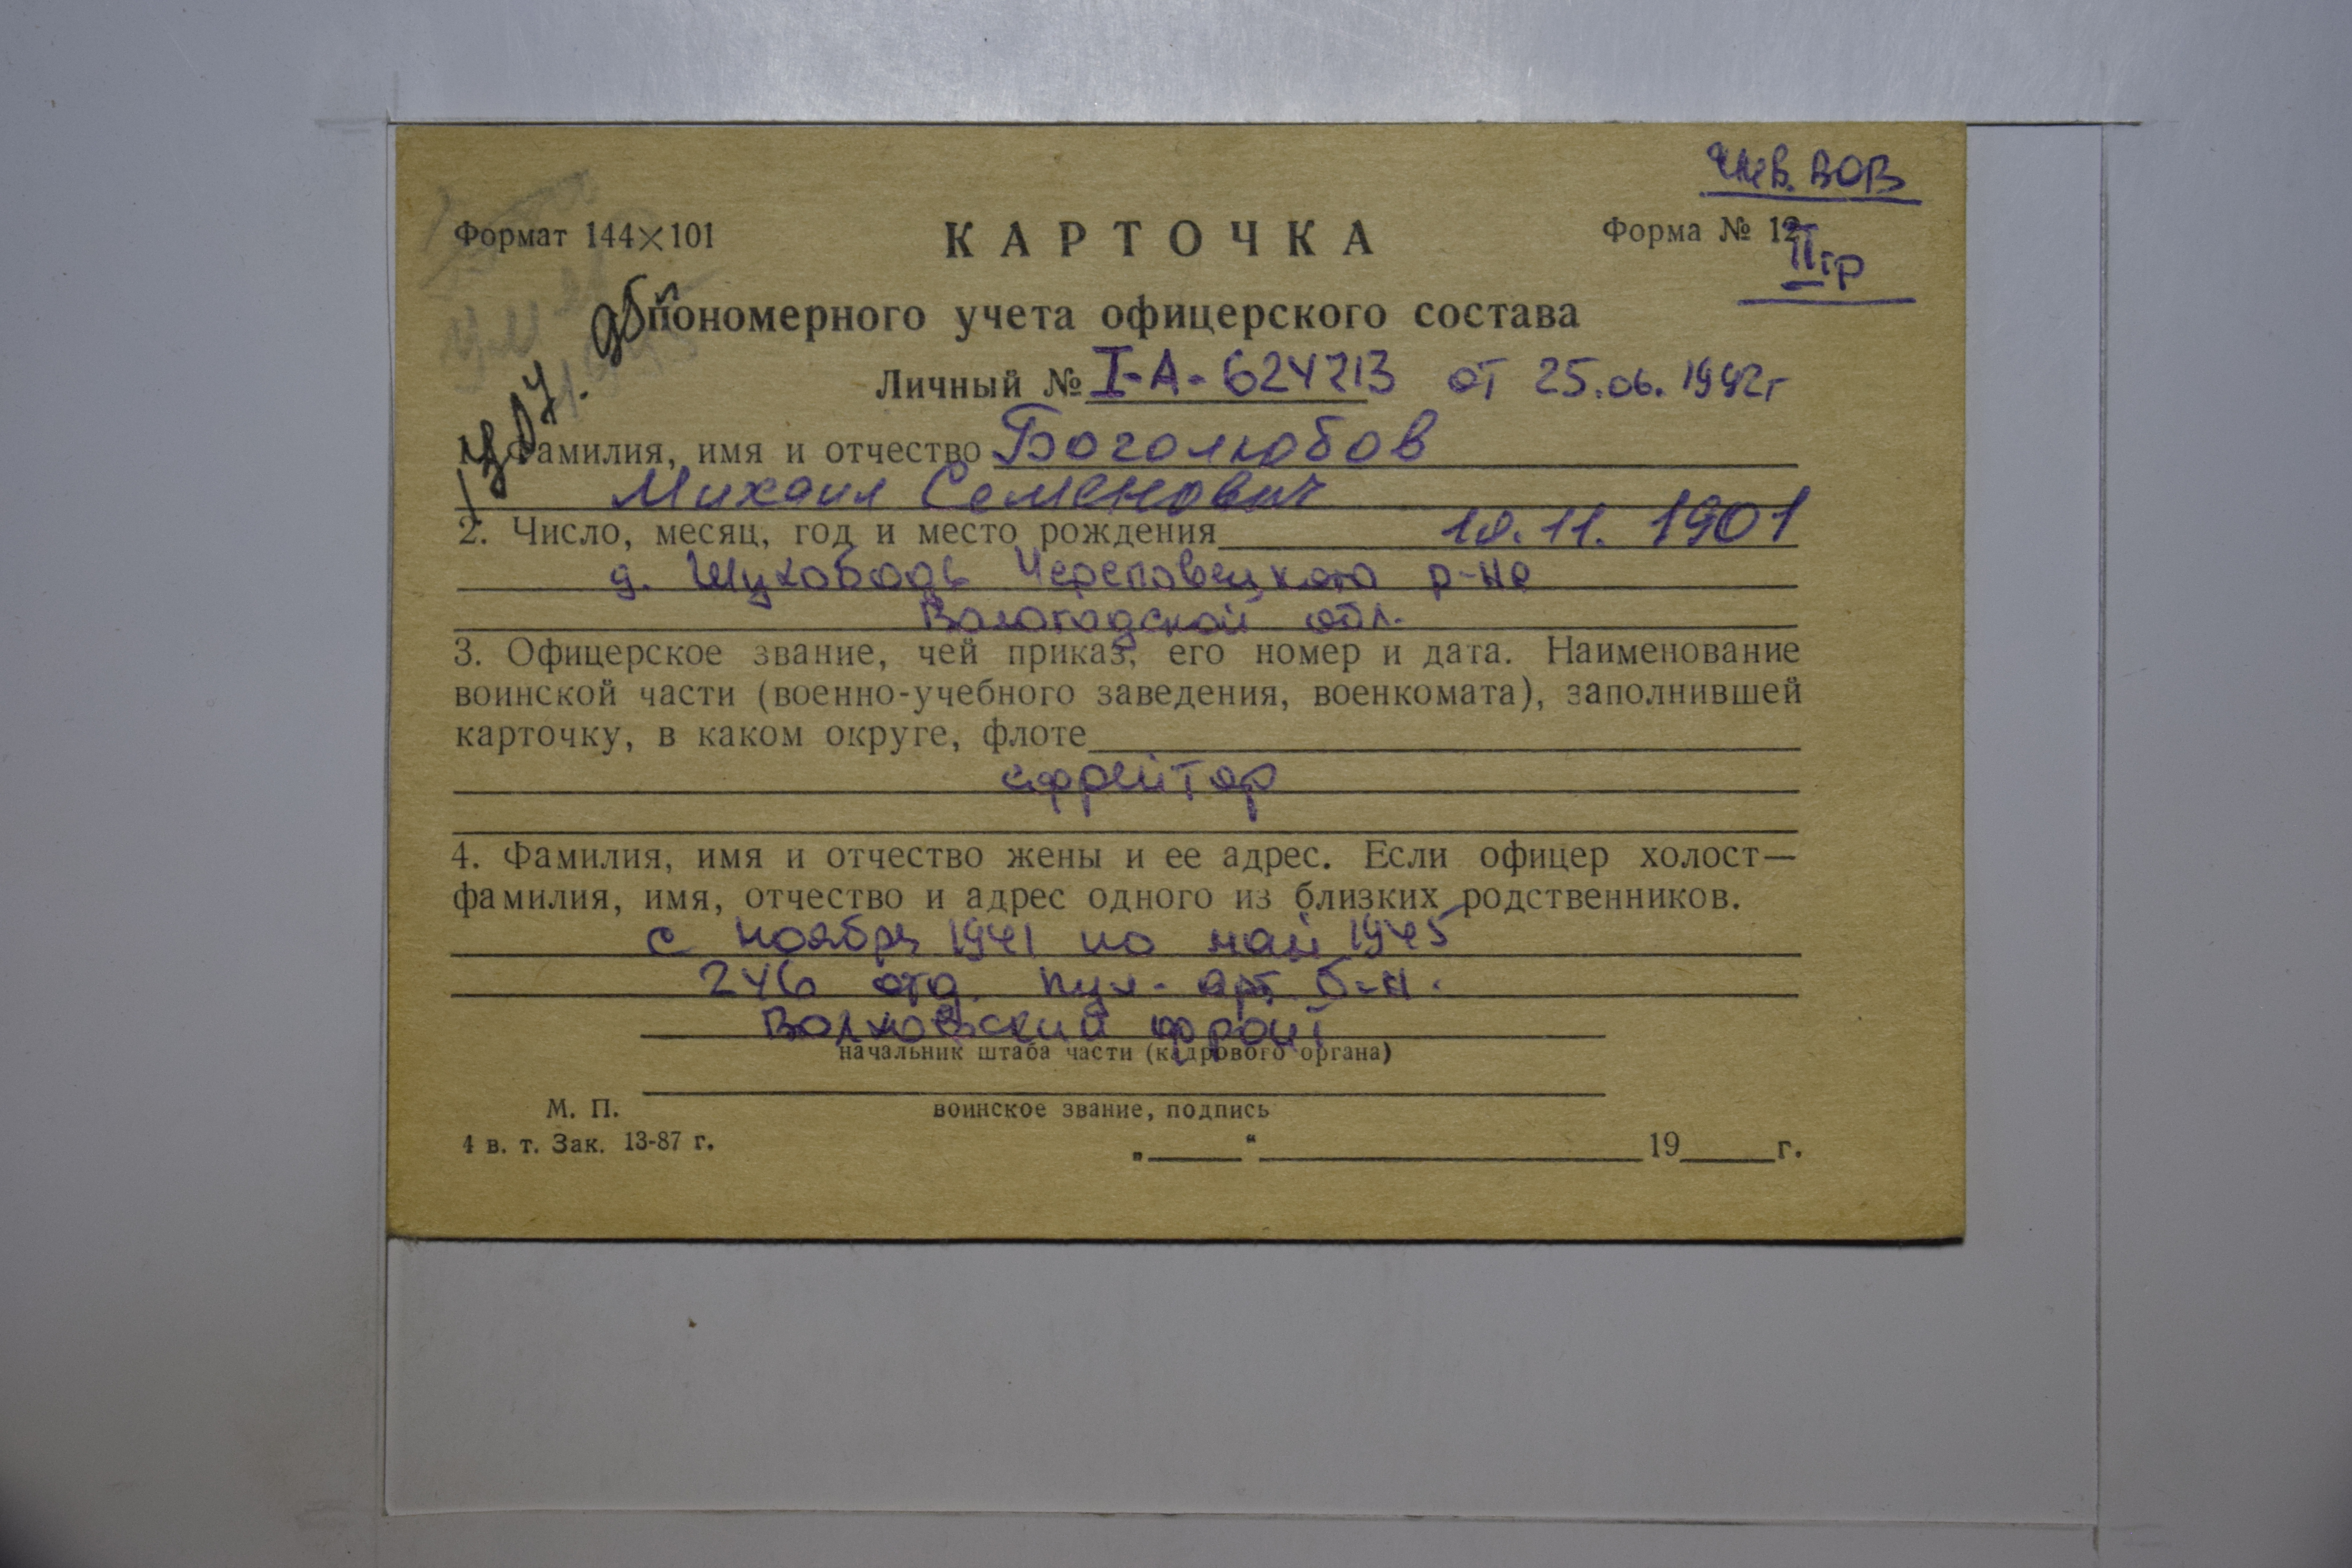 инв. ВОВ
Формат 144×101
КАРТОЧКА
Форма № 12
II гр
пономерного учета офицерского состава
Личный № I-А-624213 от 25.06.1992г
1. Фамилия, имя и отчество Боголюбов
Михаил Семенович
2. Число, месяц, год и место рождения 10.11.1901
д. Шухободь Череповецкого р-на
Вологодской обл.
3. Офицерское звание, чей приказ, его номер и дата. Наименование
воинской части (военно-учебного заведения, военкомата), заполнившей
карточку, в каком округе, флоте
ефрейтор
4. Фамилия, имя и отчество жены и ее адрес. Если офицер холост—
фамилия, имя, отчество и адрес одного из близких родственников.
с ноября 1941 по май 1945
246 отд. пул-арт б-н.
Волховский фронт
начальник штаба части (кадрового органа)
М. П.
воинское звание, подпись
4 в. т. Зак. 13-87 г.
„ “ 19 г.